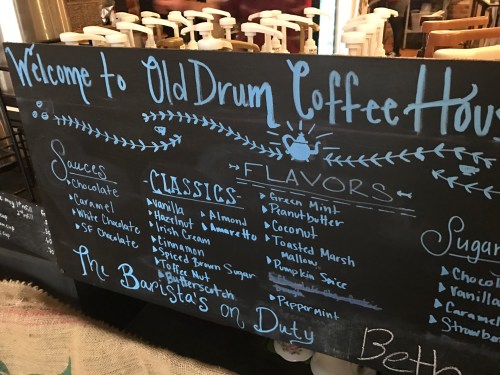 Welcome to Old Drum Coffee Hou
Sauces
Chocolate
Caramel
White Chocolate
SF Chocolate
CLASSICS
Vanilla
Hazelnut
Irish Cream
Cinnamon
Spiced Brown Sugar
Toffee Nut
Butterscotch
Almond
Amaretto
FLAVORS
Green Mint
Peanutbutter
Coconut
Toasted Marsh
mallow
Pumpkin Spice
Peppermint
Sugar
Chocol
Vanill
Caram
Strawb
The Barista's on Duty
Beth